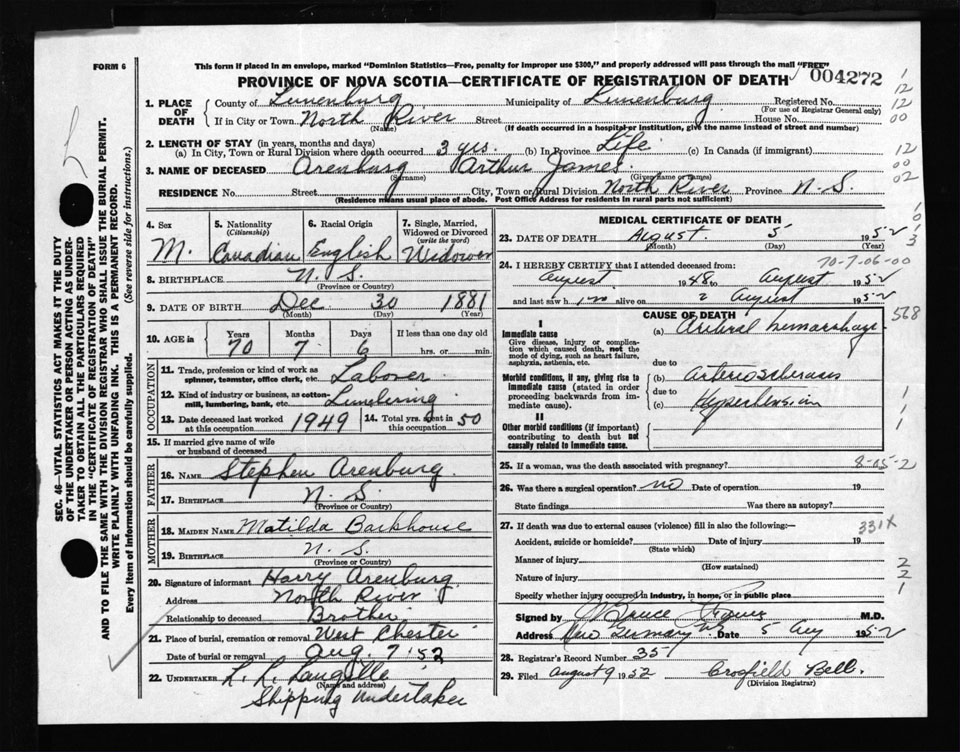 FORM 6
This form if placed in an envelope, marked "Dominion Statistics—Free, penalty for improper use $300," and properly addressed will pass through the mail "FREE"
PROVINCE OF NOVA SCOTIA—CERTIFICATE OF REGISTRATION OF DEATH 004272
1. PLACE OF DEATH
County of Lunenburg Municipality of Lunenburg Registered No.
(For use of Registrar General only)
If in City or Town North River Street House No.
(Name) (If death occurred in a hospital or institution, give the name instead of street and number)
2. LENGTH OF STAY (in years, months and days)
(a) In City, Town or Rural Division where death occurred 3 yrs. (b) In Province Life (c) In Canada (if immigrant)
3. NAME OF DECEASED Arenburg Arthur James
(Surname) (Given Name or Names)
RESIDENCE No. Street City, Town or Rural Division North River Province N.S.
(Residence means usual place of abode. Post Office Address for residents in rural parts not sufficient)
4. Sex M.
5. Nationality (Citizenship) Canadian
6. Racial Origin English
7. Single, Married, Widowed or Divorced (write the word) Widower
8. BIRTHPLACE N.S.
(Province or Country)
9. DATE OF BIRTH Dec 30 1881
(Month) (Day) (Year)
10. AGE in Years 70 Months 7 Days 6 If less than one day old hrs. or min.
OCCUPATION
11. Trade, profession or kind of work as spinner, teamster, office clerk, etc. Laborer
12. Kind of industry or business, as cotton-mill, lumbering, bank, etc. Lumbering
13. Date deceased last worked at this occupation 1949
14. Total yrs. spent in this occupation 50
15. If married give name of wife or husband of deceased
FATHER
16. NAME Stephen Arenburg
17. BIRTHPLACE N.S.
(Province or Country)
MOTHER
18. MAIDEN NAME Matilda Barkhouse
19. BIRTHPLACE N.S.
(Province or Country)
20. Signature of informant Harry Arenburg
Address North River
Relationship to deceased Brother
21. Place of burial, cremation or removal West Chester
Date of burial or removal Aug. 7 '52
22. UNDERTAKER L. L. Langille
(Name and address)
Shipping Undertaker
MEDICAL CERTIFICATE OF DEATH
23. DATE OF DEATH August 5 1952
(Month) (Day) (Year)
70-7-06-00
24. I HEREBY CERTIFY that I attended deceased from:
August 1948 to August 1952
and last saw him alive on 2 August 1952
CAUSE OF DEATH
568
I
Immediate cause
Give disease, injury or complication which caused death, not the mode of dying, such as heart failure, asphyxia, asthenia, etc.
(a) hemorrhage
due to
Morbid conditions, if any, giving rise to immediate cause (stated in order proceeding backwards from immediate cause).
(b) Arteriosclerosis
due to
(c) Hypertension
II
Other morbid conditions (if important) contributing to death but not causally related to immediate cause.
25. If a woman, was the death associated with pregnancy? 8-05-2
26. Was there a surgical operation? no Date of operation 19
State findings Was there an autopsy?
27. If death was due to external causes (violence) fill in also the following:— 331X
Accident, suicide or homicide? Date of injury 19
(State which)
Manner of injury
(How sustained)
Nature of injury
Specify whether injury occurred in industry, in home, or in public place
Signed by Bruce M.D.
Address New Germany N.S. Date 5 Aug 1952
28. Registrar's Record Number 351
29. Filed August 9 1952 Crofield Bell.
(Division Registrar)
SEC. 46—VITAL STATISTICS ACT MAKES IT THE DUTY
OF THE UNDERTAKER OR PERSON ACTING AS UNDER-
TAKER TO OBTAIN ALL THE PARTICULARS REQUIRED
IN THE "CERTIFICATE OF REGISTRATION OF DEATH"
AND TO FILE THE SAME WITH THE DIVISION REGISTRAR WHO SHALL ISSUE THE BURIAL PERMIT.
WRITE PLAINLY WITH UNFADING INK. THIS IS A PERMANENT RECORD.
Every item of Information should be carefully supplied. (See reverse side for instructions.)